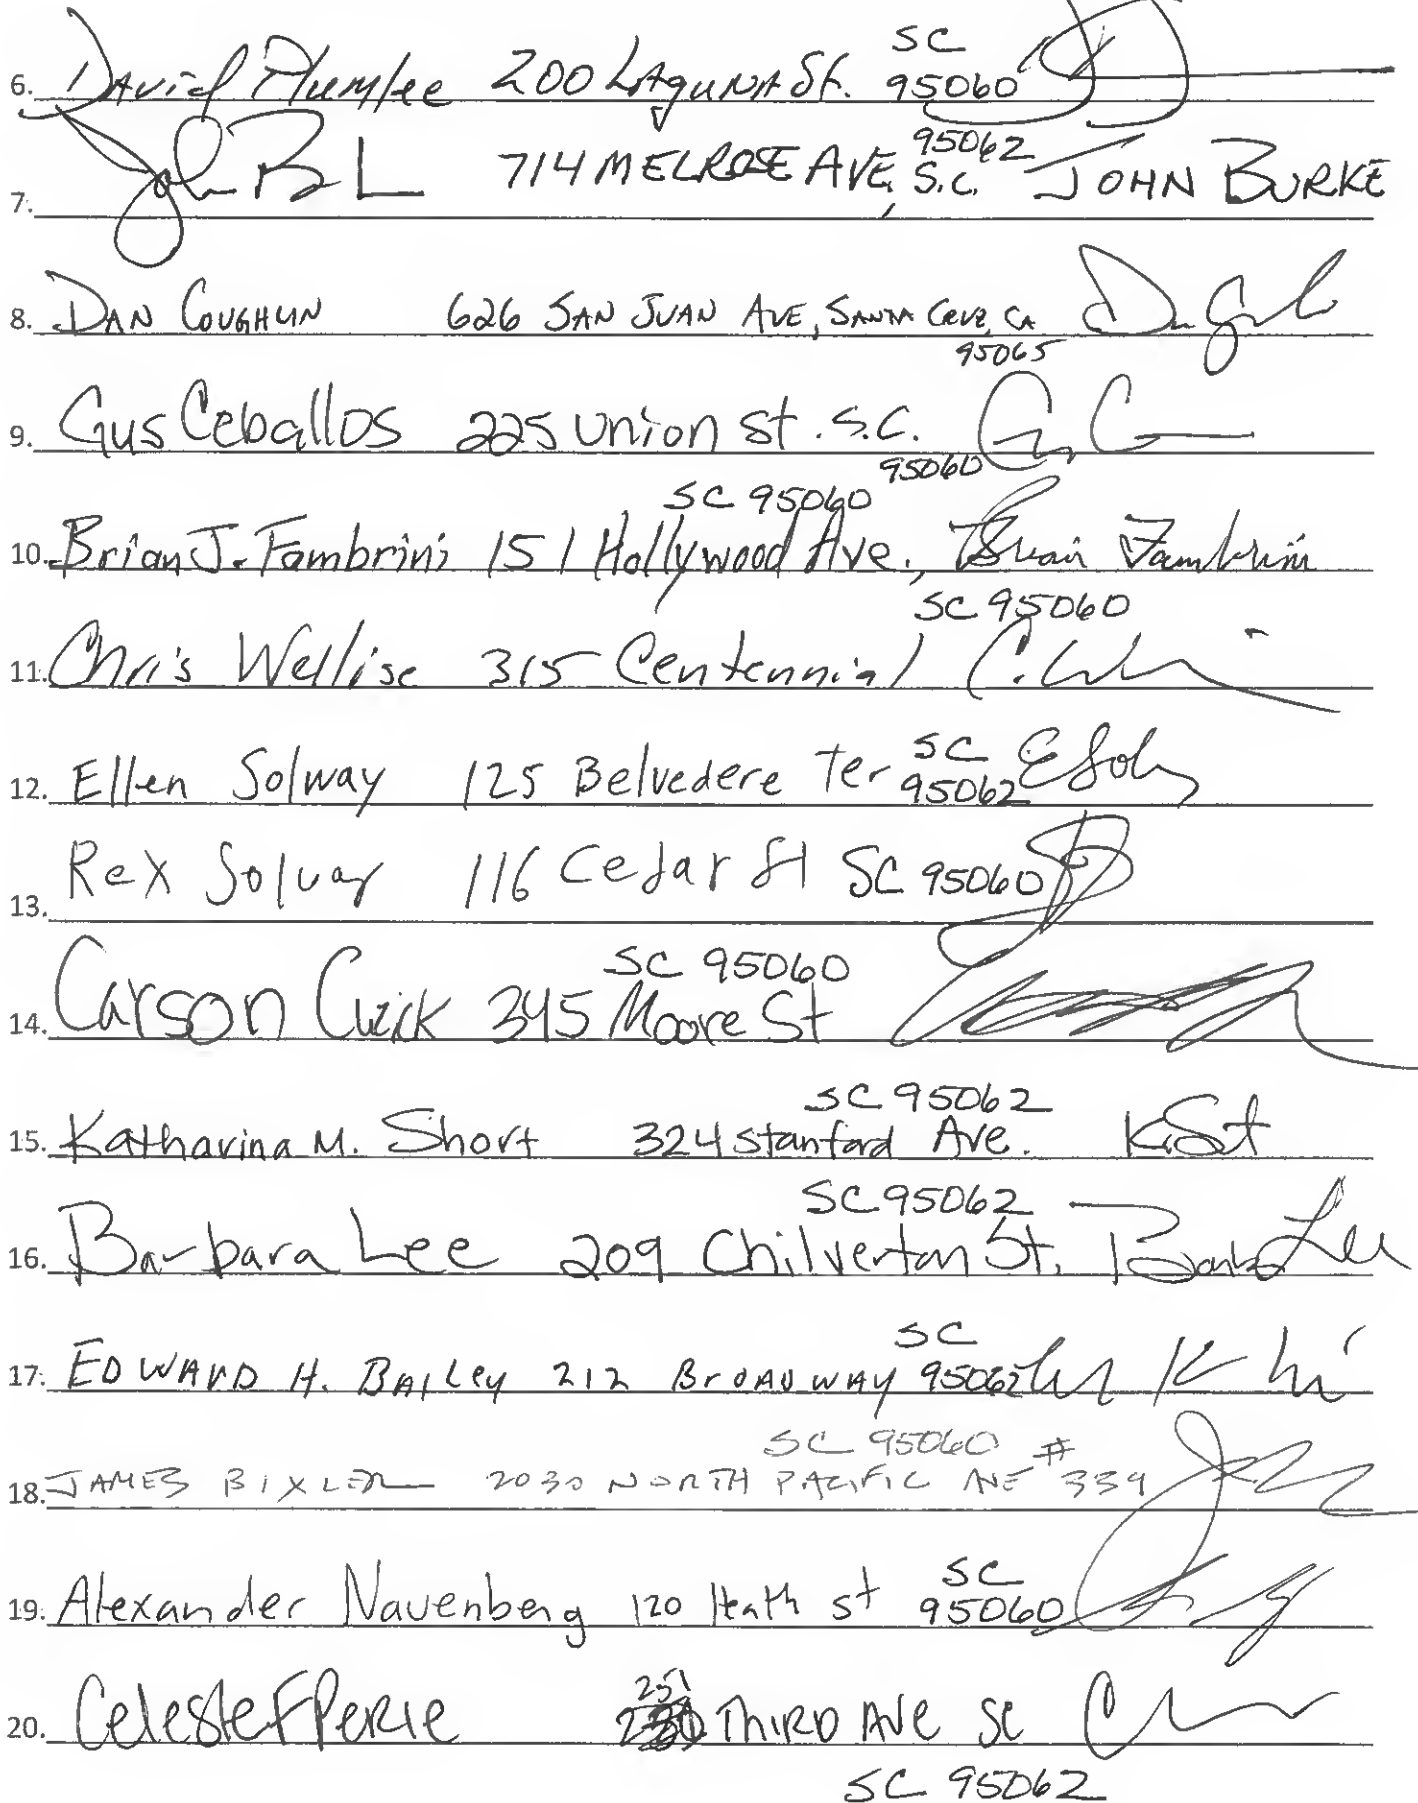 6. David Plumlee 200 Laguna St. SC 95060
7. 714 MELROSE AVE, S.C. 95062 JOHN BURKE
8. DAN COUGHLIN 626 SAN JUAN AVE, SANTA CRUZ, CA 95065
9. Gus Ceballos 225 Union St. S.C. 95060
10. Brian J. Fambrini 151 Hollywood Ave., SC 95060 Brian Fambrini
11. Chris Wellise 315 Centennial SC 95060
12. Ellen Solway 125 Belvedere Ter SC 95062
13. Rex Solway 116 Cedar St SC 95060
14. Carson 345 Moore St SC 95060
15. Katharina M. Short 324 Stanford Ave. SC 95062
16. Barbara Lee 209 Chilverton St. SC 95062 Barb Lee
17. EDWARD H. BAILEY 212 BROADWAY SC 95062
18. JAMES BIXLER 2030 NORTH PACIFIC AVE #339 SC 95060
19. Alexander Nauenberg 120 Heath St SC 95060
20. Celeste F PERIE 251 THIRD AVE SC
SC 95062